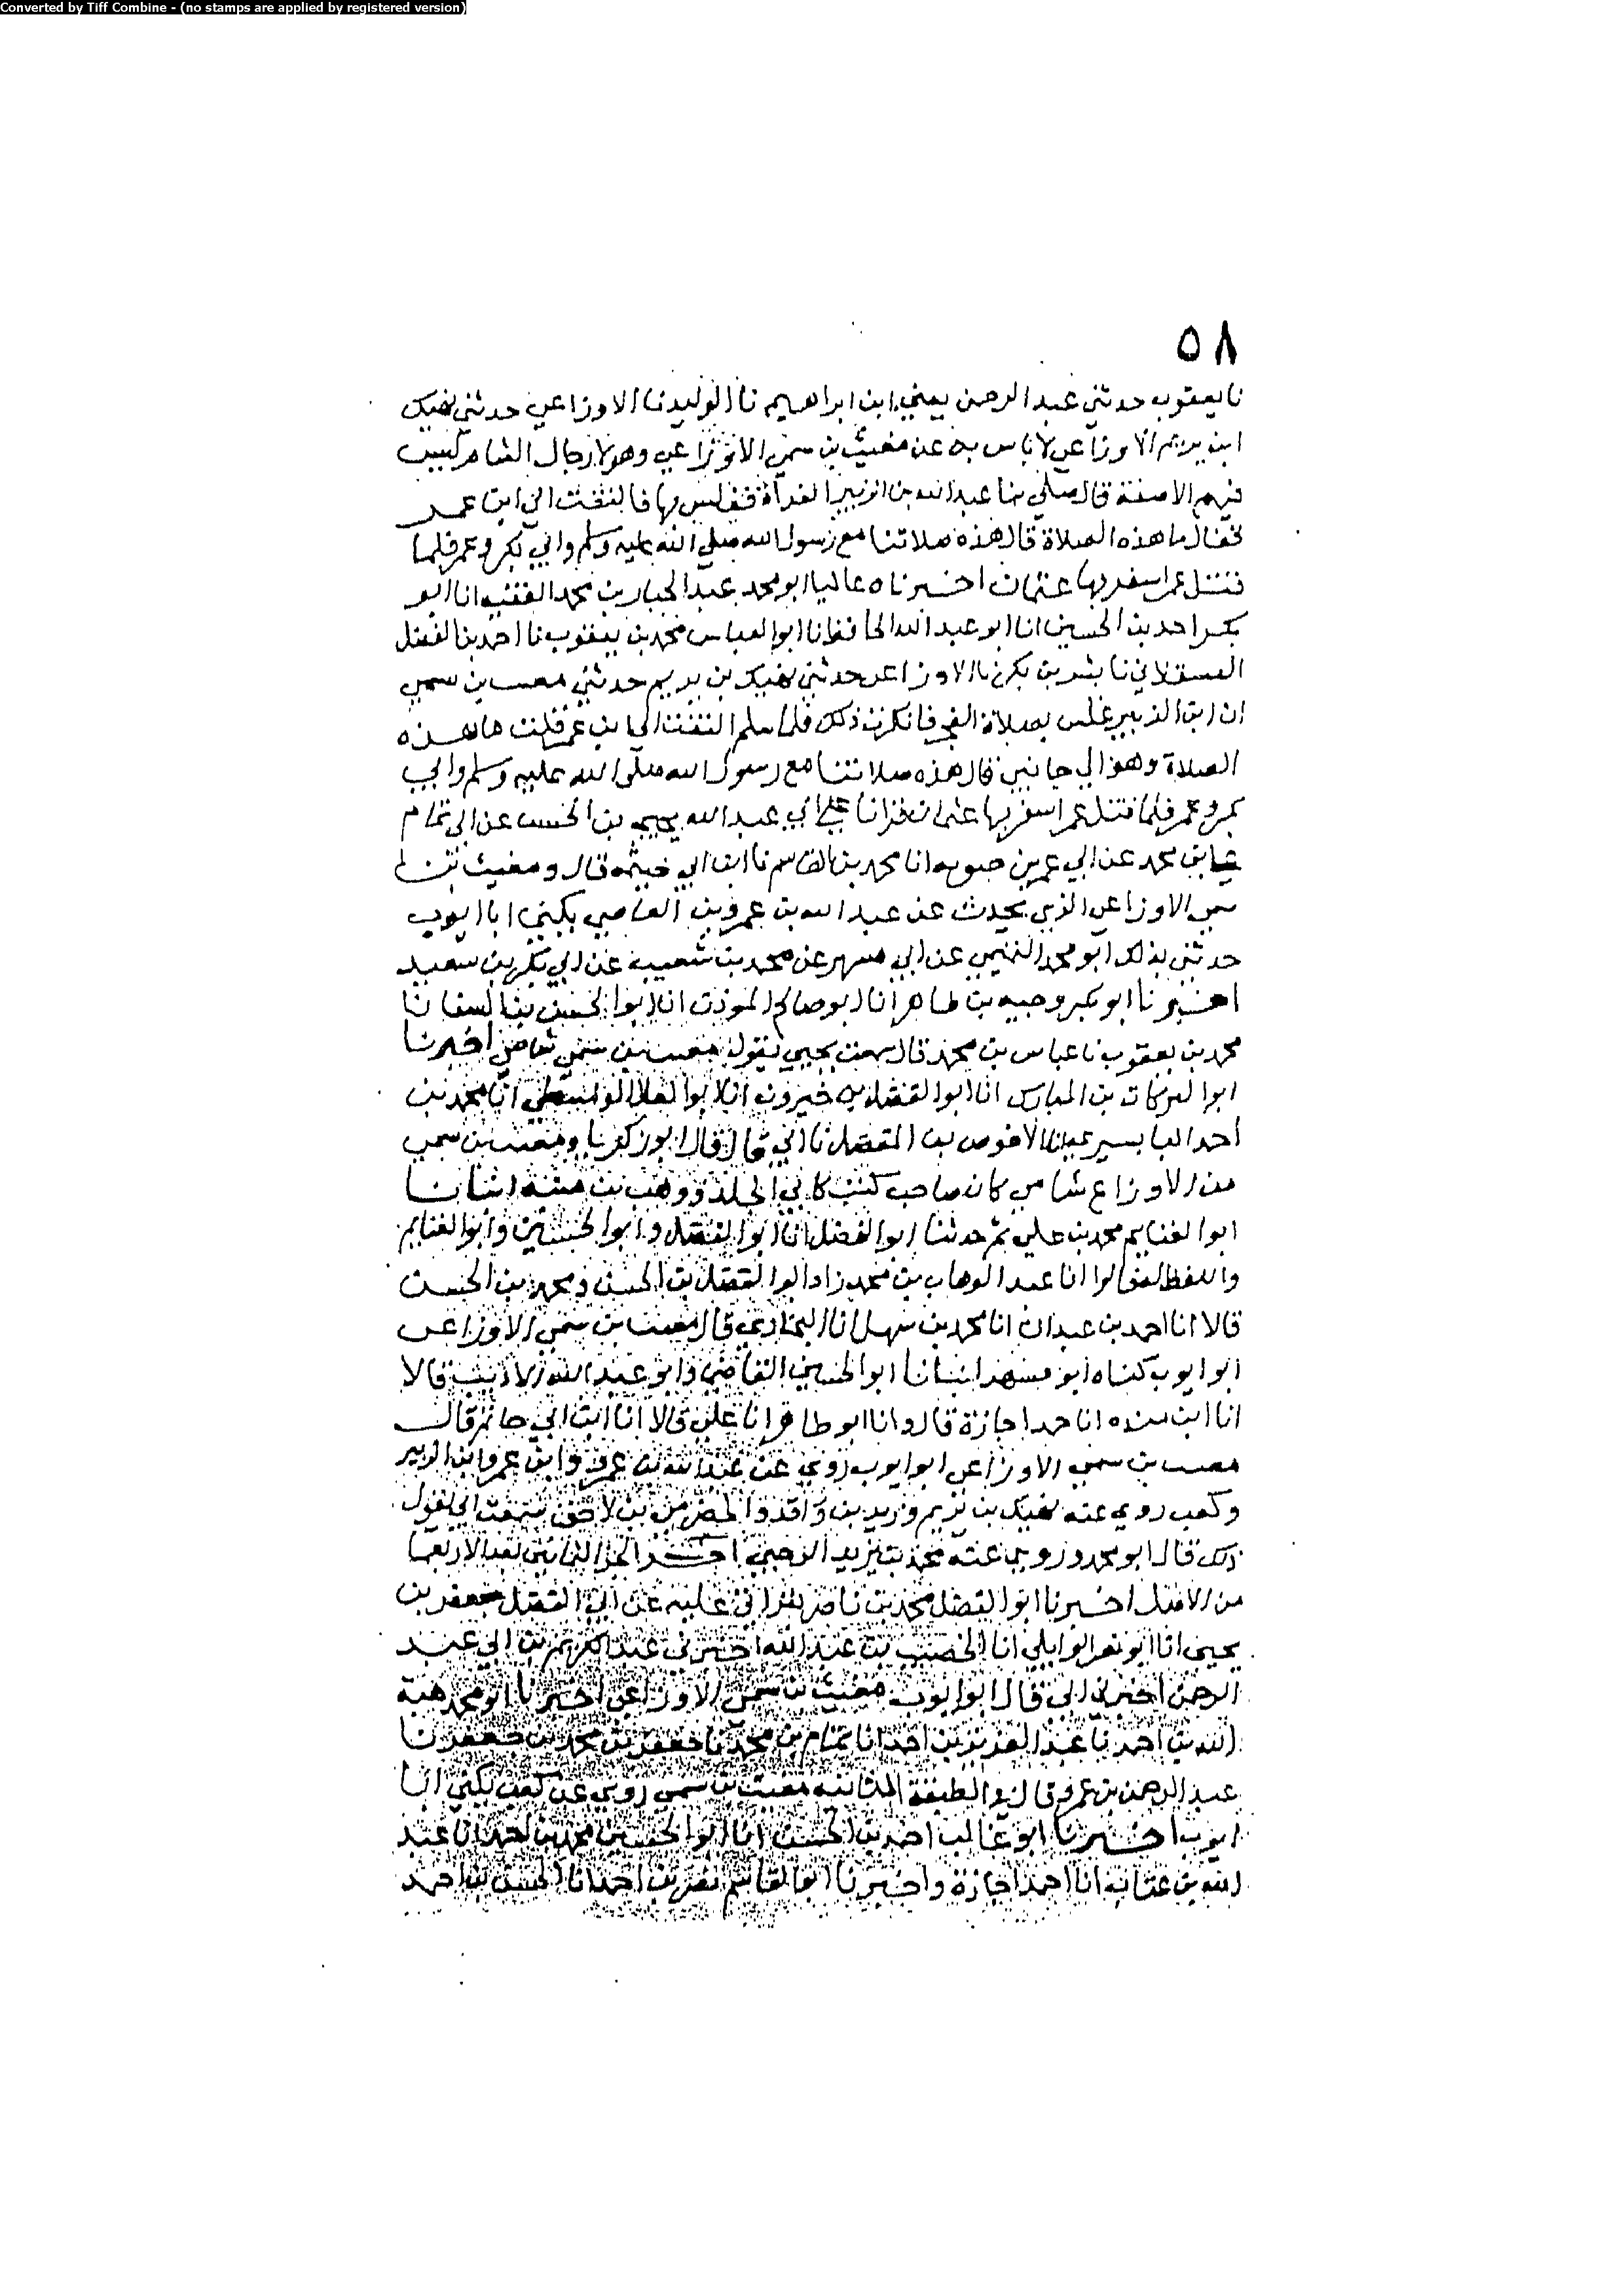 Converted by Tiff Combine - (no stamps are applied by registered version)
٥٨
نا يعقوب حدثني عبد الرحمن يعني ابن ابراهيم نا الوليد نا الاوزاعي حدثني نهيك
ابن يريم الاوزاعي لا باس به عن مغيث بن سمي الاوزاعي وهولا رجال الشام ليس
فيهم الا صفة قال صلى بنا عبد الله بن الزبير الغداة فغلس بها فالتفت الى ابن عمر
فقال ما هذه الصلاة قال هذه صلاتنا مع رسول الله صلى الله عليه وسلم وابي بكر وعمر فلما
قتل عمر اسفر بها عثمان اخبرناه عاليا ابو محمد عبد الجبار بن محمد الفقيه انا ابو
بكر احمد بن الحسين انا ابو عبد الله الحافظ نا ابو العباس محمد بن يعقوب نا احمد بن الفضل
العسقلاني نا بشر بن بكر نا الاوزاعي حدثني نهيك بن يريم حدثني مغيث بن سمي
ان ابن الزبير غلس بصلاة الفجر فانكرت ذلك فلما سلم التفت الى ابن عمر فقلت ما هذه
الصلاة وهو الى جانبي قال هذه صلاتنا مع رسول الله صلى الله عليه وسلم وابي
بكر وعمر فلما قتل عمر اسفر بها عثمان قرانا على ابي عبد الله يحيى بن الحسن عن ابي تمام
علي بن محمد عن ابي عمر بن حيويه انا محمد بن القاسم نا ابن ابي خيثمة قال ومغيث بن
سمي الاوزاعي الذي يحدث عن عبد الله بن عمرو بن العاصي يكنى ابا ايوب
حدثني بذلك ابو محمد التميمي عن ابي مسهر عن محمد بن شعيب عن ابي بكر بن سعيد
اخبرنا ابو بكر وجيه بن طاهر انا ابو صالح الموذن انا ابو الحسن بن السقا نا
محمد بن يعقوب نا عباس بن محمد قال سمعت يحيى يقول مغيث بن سمي شامي اخبرنا
ابو البركات بن المبارك انا ابو الفضل بن خيرون انا ابو العلا الواسطي انا محمد بن
احمد البابسيري انا الاحوص بن المفضل نا ابي قال قال ابو زكريا ومغيث بن سمي
من الاوزاع شامي كان صاحب كتب كابي الجلد ووهب بن منبه انبانا
ابو الغنايم محمد بن علي ثم حدثنا ابو الفضل انا ابو الفضل وابو الحسين وابو الغنايم
واللفظ له قالوا انا عبد الوهاب بن محمد زاد ابو الفضل بن الحسن ومحمد بن الحسن
قالا انا احمد بن عبدان انا محمد بن سهل انا البخاري قال مغيث بن سمي الاوزاعي
ابو ايوب كناه ابو مسهر انبانا ابو الحسين القاضي وابو عبد الله الاديب قالا
انا ابن منده انا حمد اجازة قال وانا ابو طاهر انا علي قالا انا ابن ابي حاتم قال
مغيث بن سمي الاوزاعي ابو ايوب روى عن عبد الله بن عمرو وابن عمر وابن الزبير
وكعب روى عنه نهيك بن يريم وزيد بن واقد والحضرمي بن لاحق سمعت ابي يقول
ذلك قال ابو محمد وروى عنه محمد بن يزيد الرحبي اخر الجز الثمانين بعد الاربعما
من الاصل اخبرنا ابو الفضل محمد بن ناصر بقراتي عليه عن ابي الفضل جعفر بن
يحيى انا ابو نصر الوايلي انا الخصيب بن عبد الله اخبرني عبد الكريم بن ابي عبد
الرحمن اخبرني ابي قال ابو ايوب مغيث بن سمي الاوزاعي اخبرنا ابو محمد هبة
الله بن احمد نا عبد العزيز بن احمد انا تمام بن محمد نا جعفر بن محمد بن جعفر نا
عبد الرحمن بن عمرو قال في الطبقة الثانية مغيث بن سمي روى عن كعب يكنى ابا
ايوب اخبرنا ابو غالب احمد بن الحسن انا ابو الحسين محمد بن احمد انا عبد
الله بن عتاب انا احمد اجازة واخبرنا ابو القاسم نصر بن احمد انا الحسن بن احمد